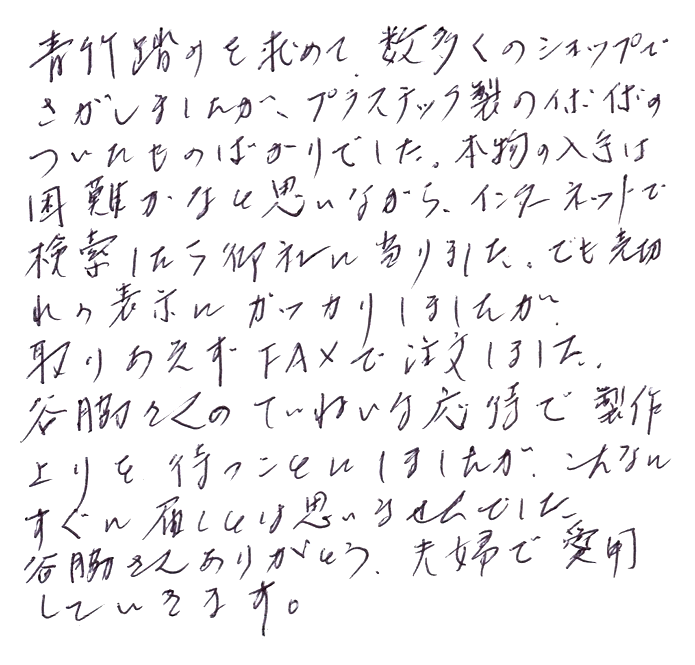 青竹踏みを求めて、数多くのショップで
さがしましたが、プラスチック製のイボイボの
ついたものばかりでした。本物の入手は
困難かなと思いながら、インターネットで
検索したら御社に当りました。でも売切
れの表示にガッカリしましたが、
取りあえずFAXで注文しました。
谷脇さんのていねいな応待で製作
上りを待つことにしましたが、こんなに
すぐに届くとは思いませんでした。
谷脇さんありがとう、夫婦で愛用
していきます。